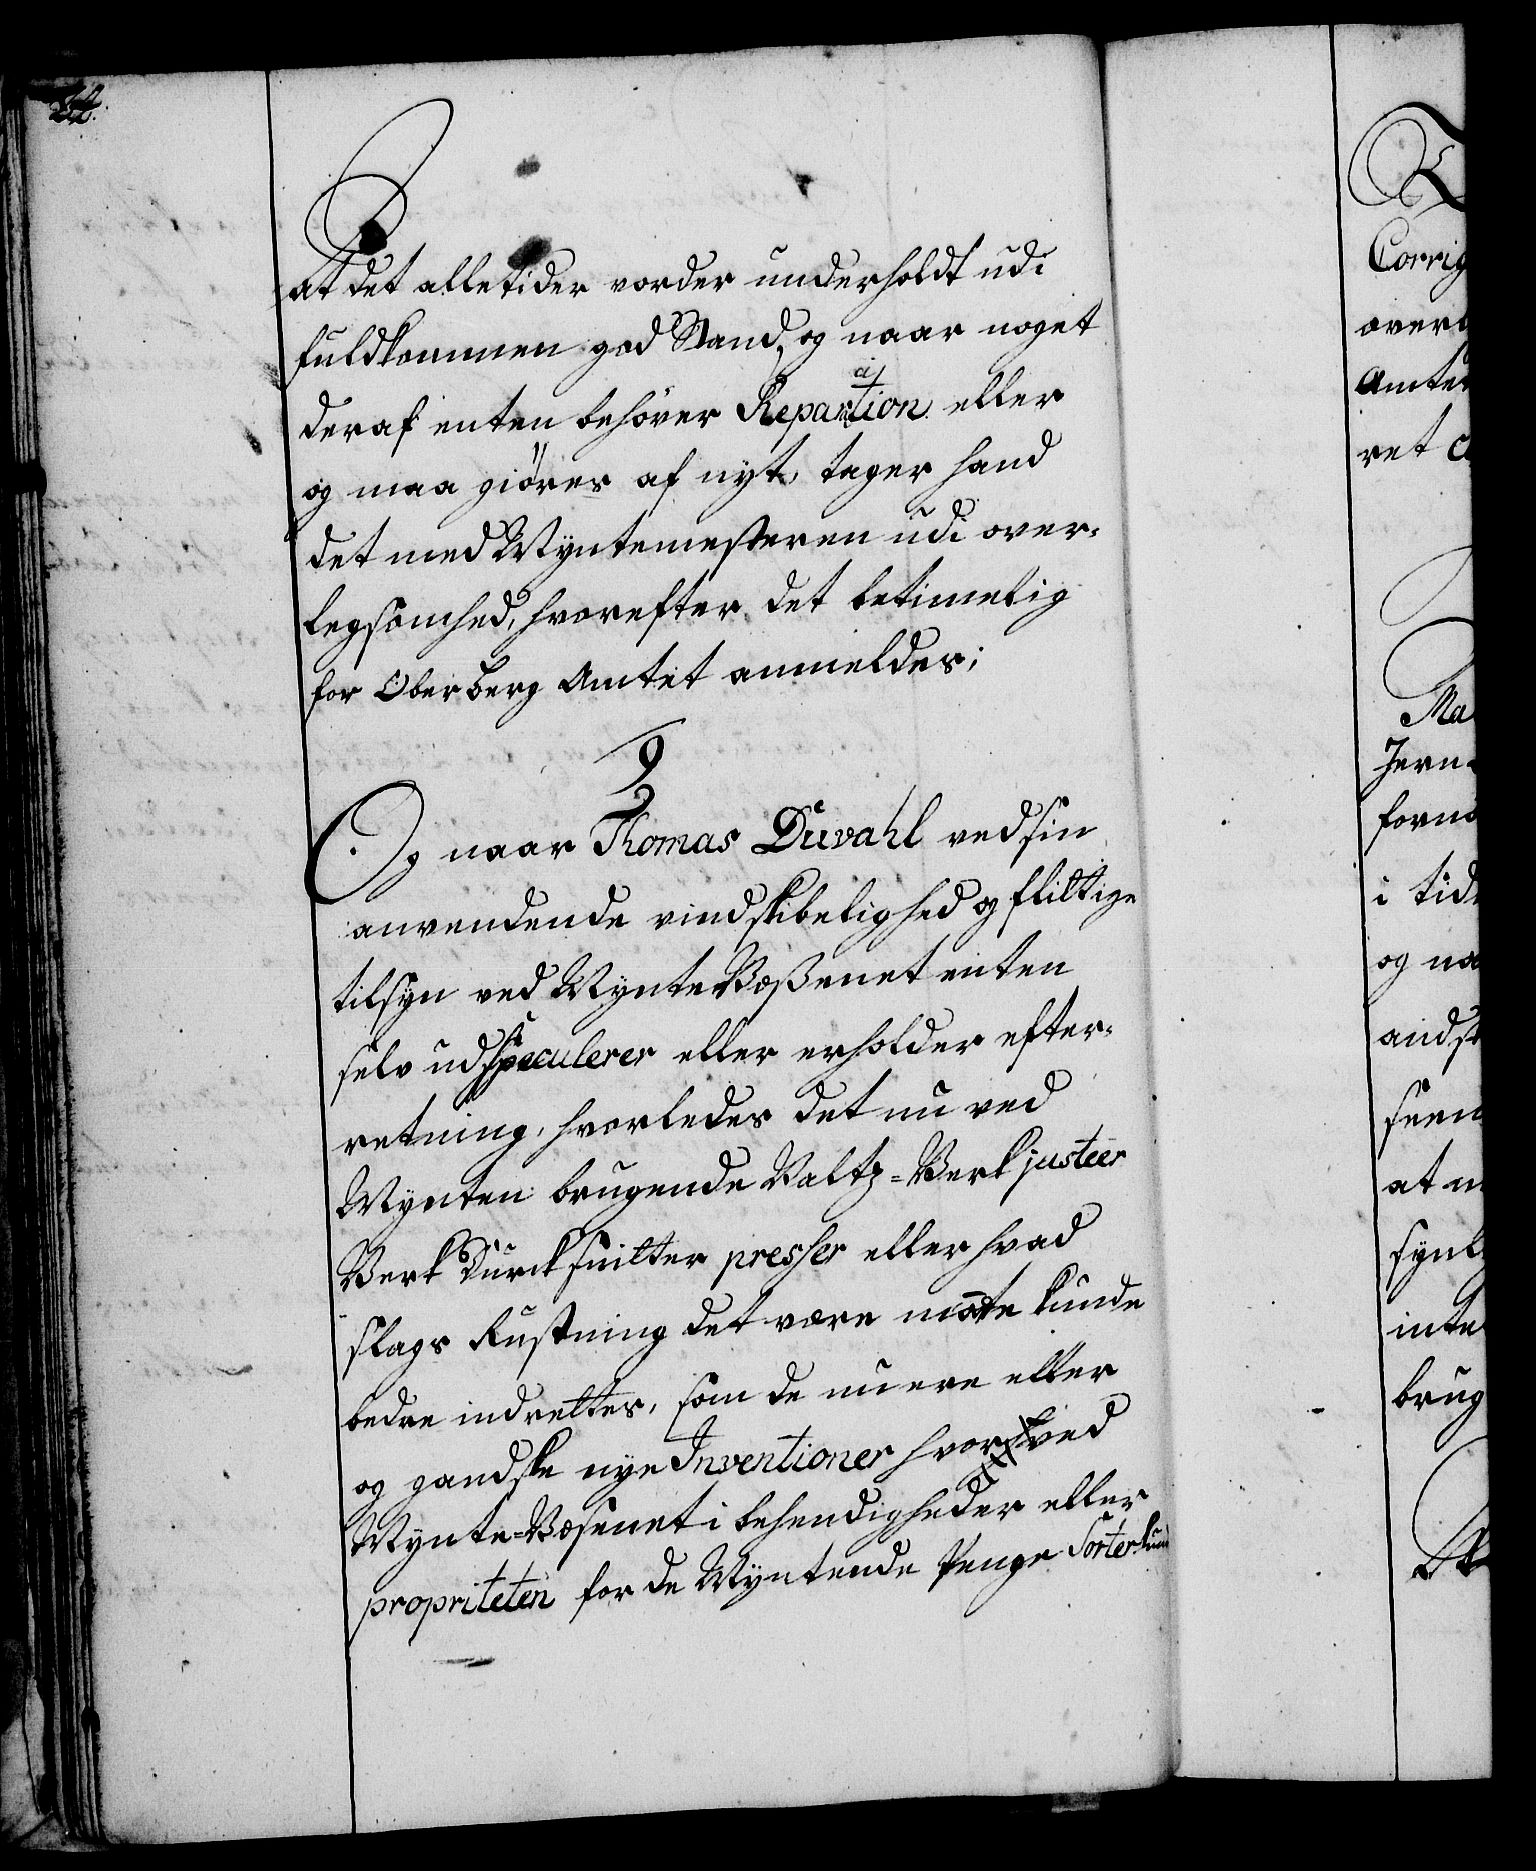 at det alletider vorder underholdt udi
fuldkommen god Stand, og naar noget
deraf enten behöver Reparation eller
og maa giöres af nyt, tager hand
det med Myntemesteren udi over-
legsomhed, hvorefter det betimelig
for Oberberg Amtet anmeldes;
9
Og naar Thomas Duvahl ved sin
anvendende vindskibelighed og flittige
tilsyn ved Mynte Væßenet enten
selv udspeculerer eller erholder efter-
retning, hvorledes det nu ved
Mynten brugende Valtz-Verk justeer
Verk Durcksnitter presser eller hvad
slags Rustning det være motte kunde
bedre indrettes, som de nu ere eller
og gandske nye Inventioner hvor ved
Mynte-Væsenet i behendigheder eller
propriteten for de Myntende Penge Sorter kund
Corrig
over
Amte
ret
Ma
Jern-
forn
i tid
og na
andst
seen
at
synl
inte
brug